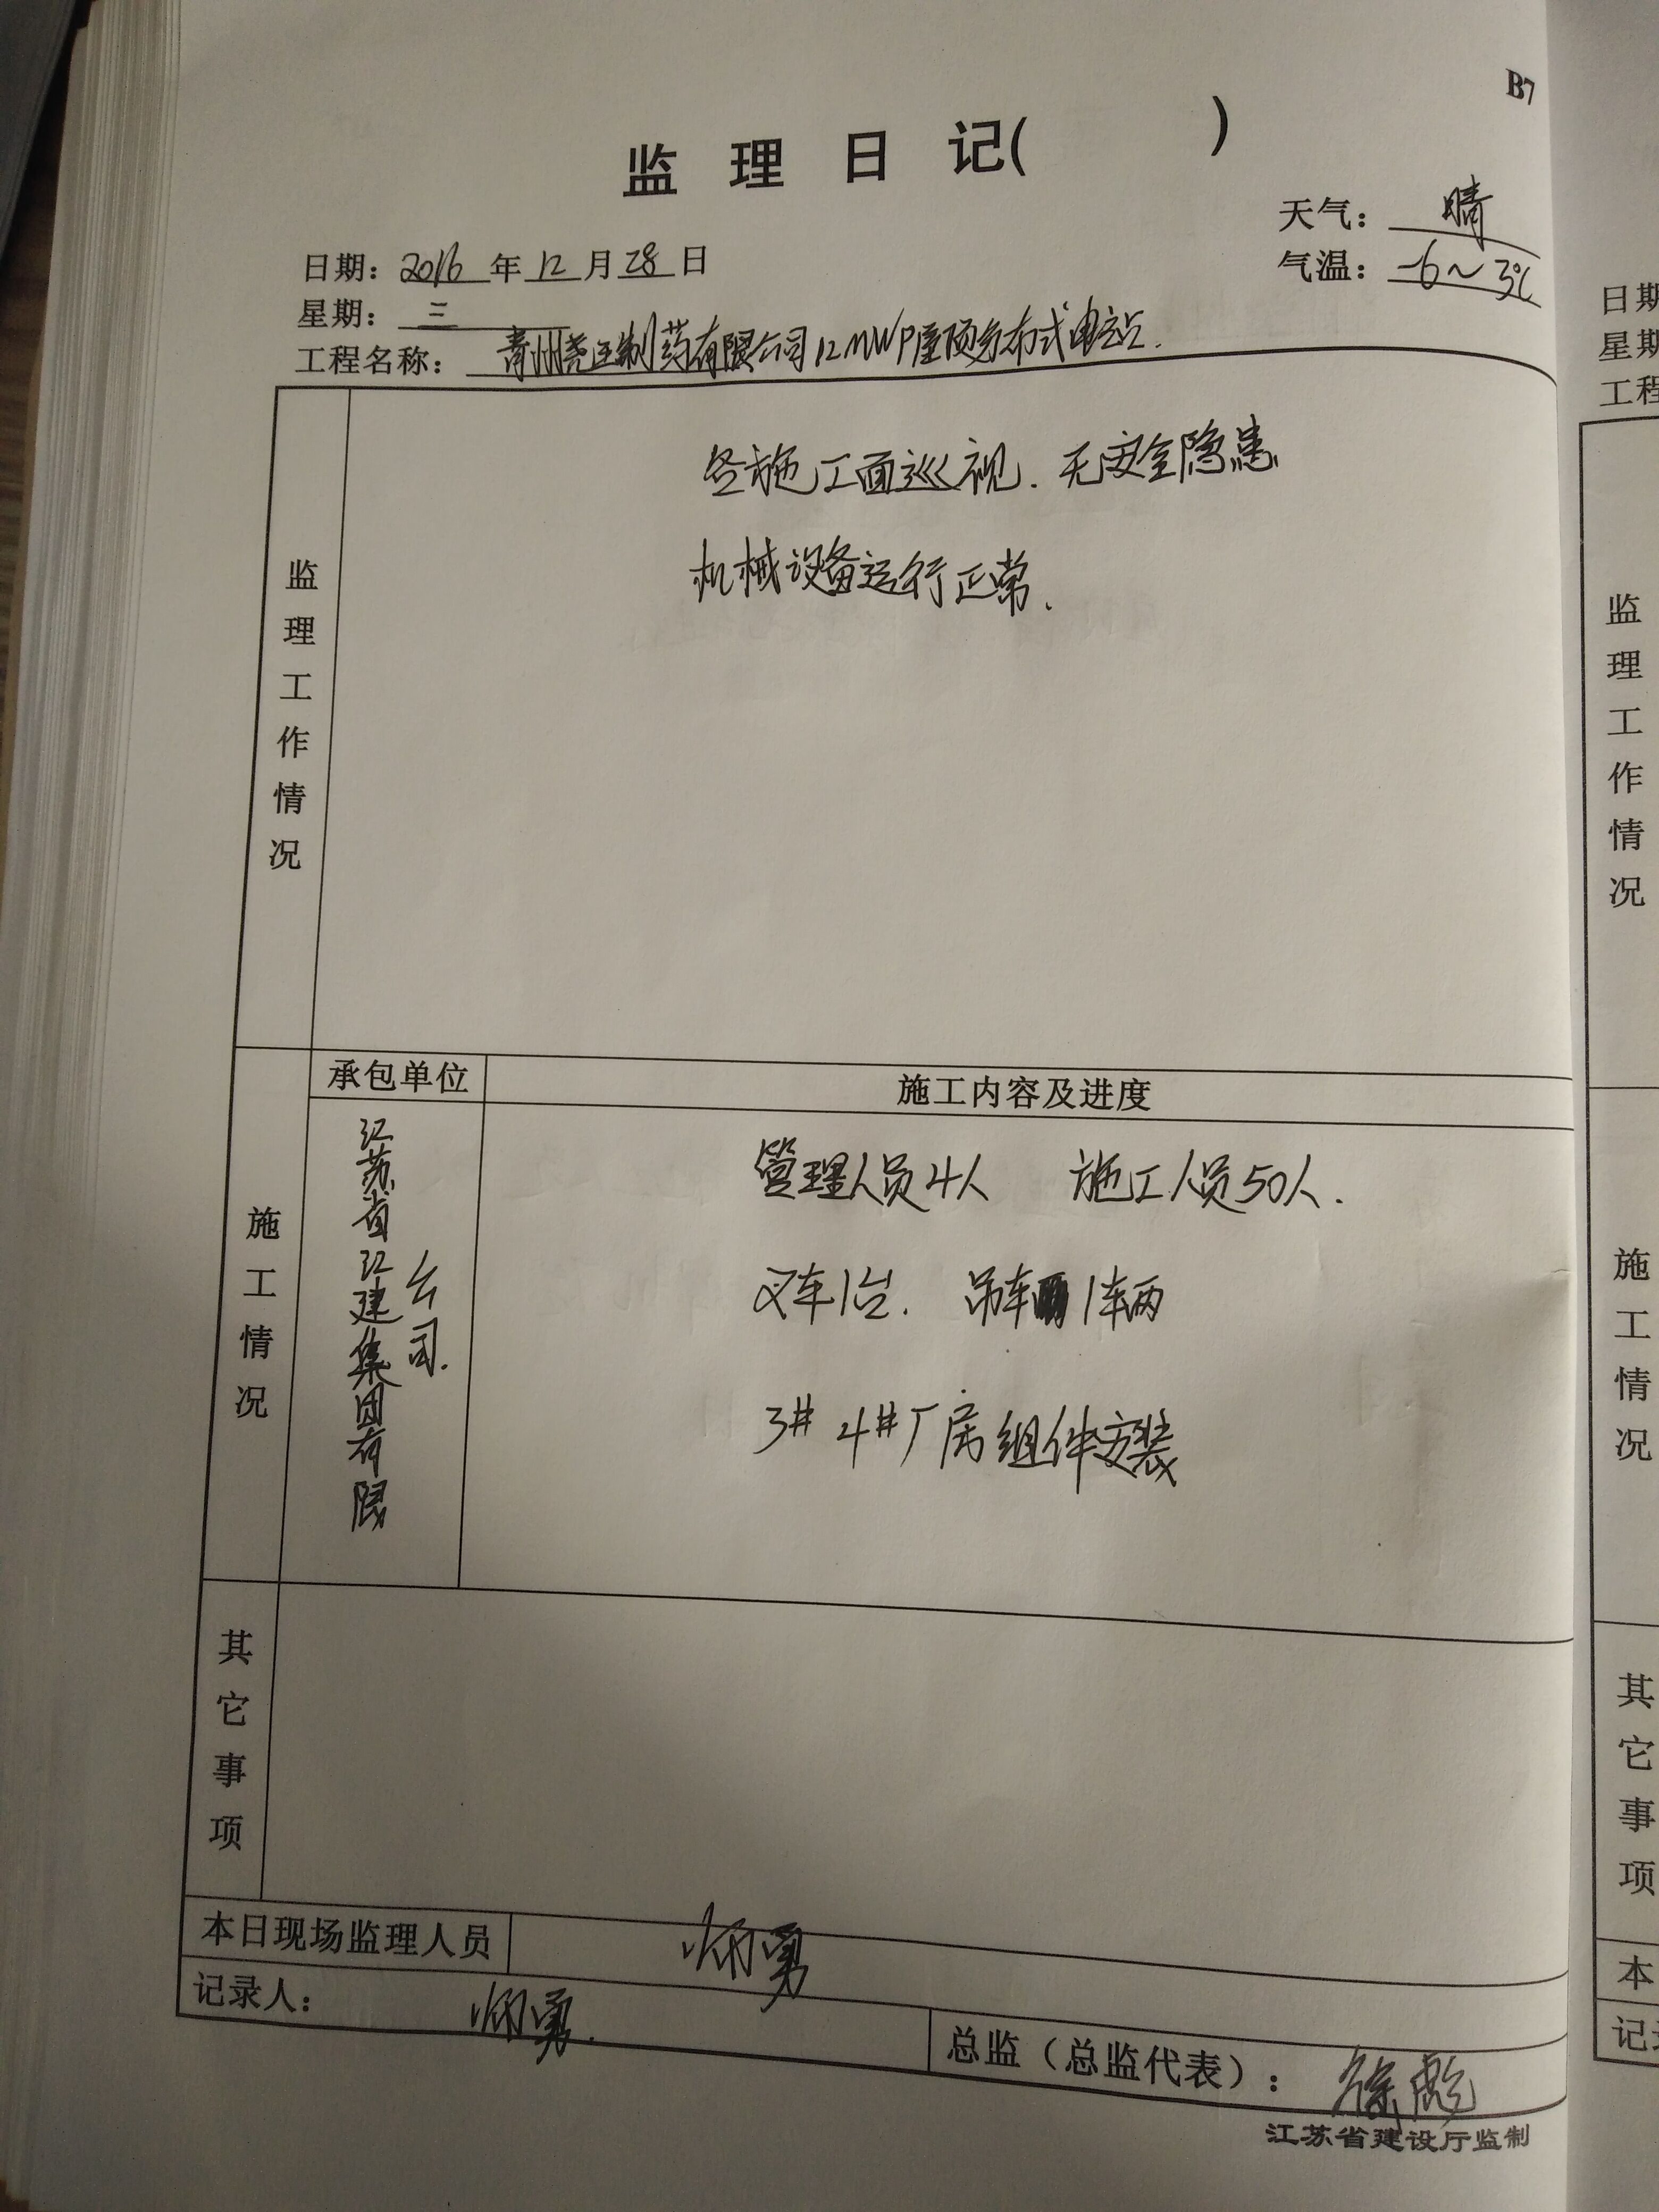 B7
监理日记( )
天气: 晴
日期: 2016年12月28日
气温: -6~3℃
星期: 三
工程名称: 青州尧王制药有限公司12MWP屋顶分布式电站.
监理工作情况
各施工面巡视.无安全隐患
机械设备运行正常.
施工情况
承包单位
施工内容及进度
江苏省江建集团有限公司.
管理人员4人 施工人员50人.
叉车1台. 吊车1车辆
3# 4#厂房组件安装
其它事项
本日现场监理人员
勇
记录人:
勇.
总监(总监代表): 徐彪
江苏省建设厅监制
日期
星期
工程
监理工作情况
施工情况
其它事项
本
记录